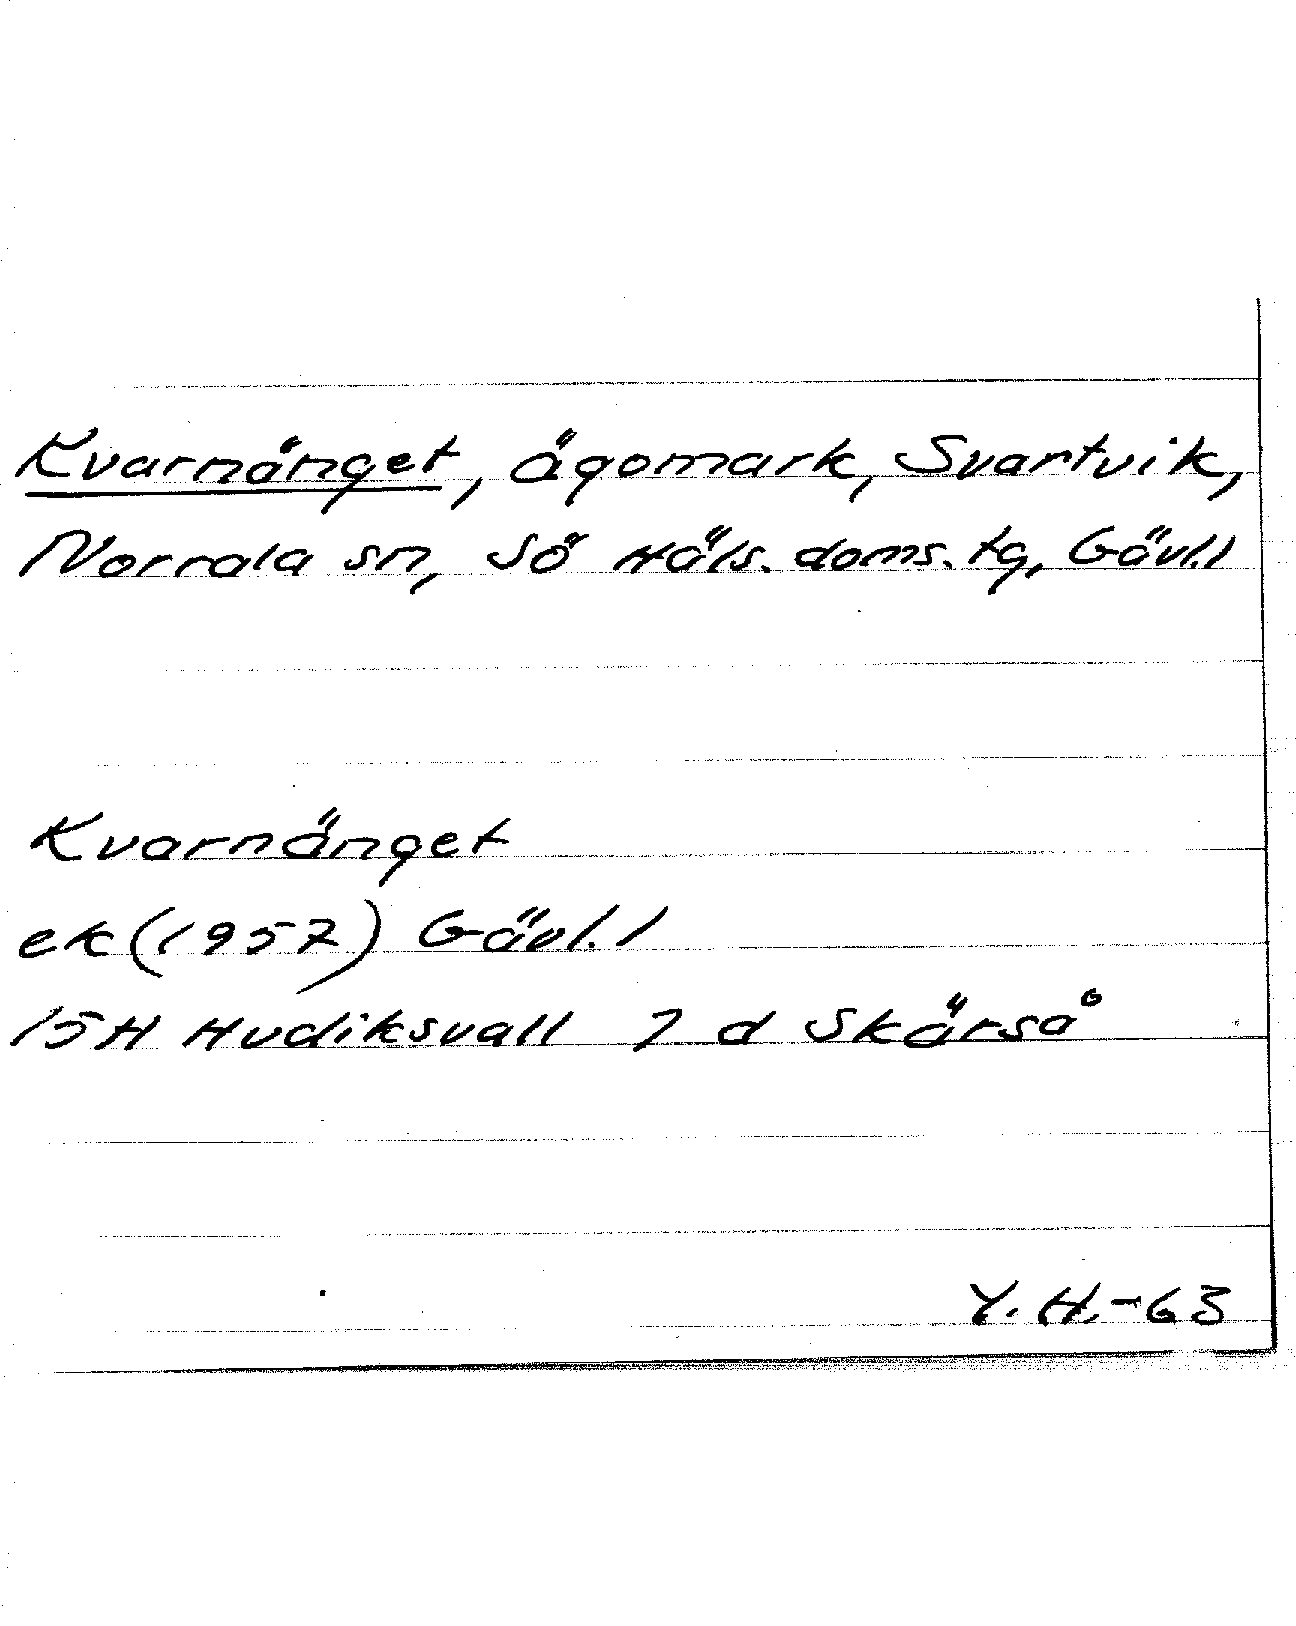 Kvarnänget, ägomark, Svartvik,
Norrala sn, Sö Häls. doms. tg, Gävl. l
Kvarnänget
ek (1957) Gävl. l
15H Hudiksvall 7 d Skärså
Y. H. -63